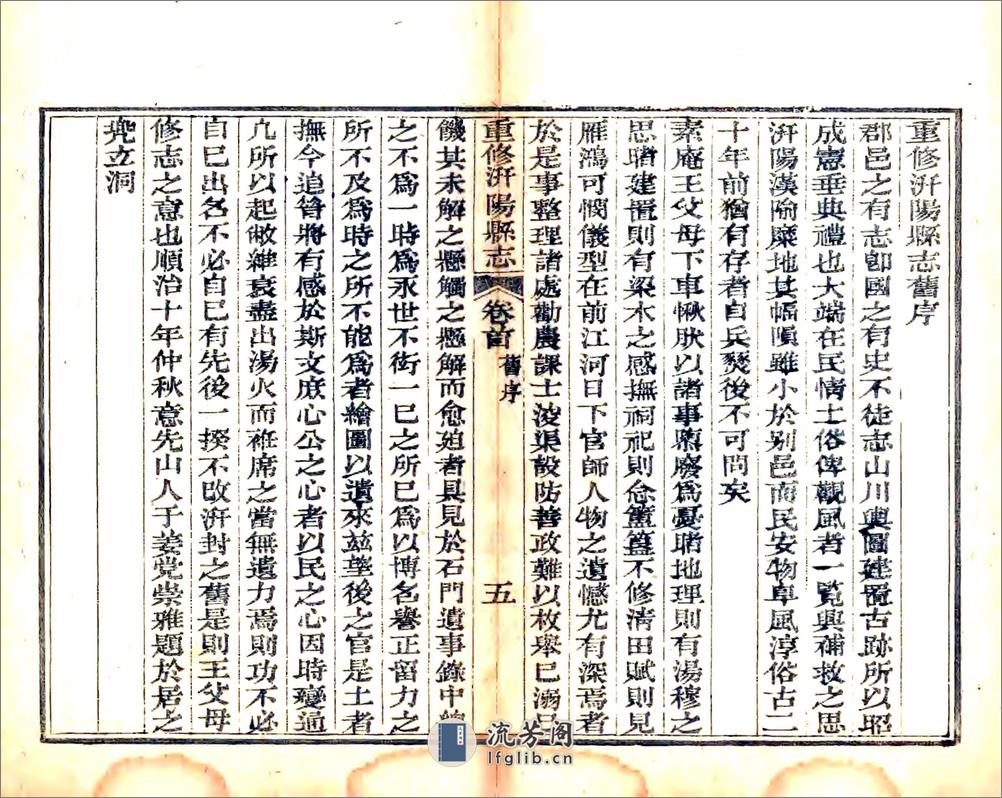 重修汧陽縣志舊序
郡邑之有志卽國之有史不徒志山川輿圖建置古跡所以昭
成憲垂典禮也大端在民情土俗俾觀風者一覽興補救之思
汧陽漢隃糜地其幅隕雖小於別邑而民安物阜風淳俗古二
十年前猶有存者自兵燹後不可問矣
素庵王父母下車愀肰以諸事隳廢爲憂睹地理則有湯穆之
思睹建置則有梁木之感撫祠祀則念簠簋不修清田賦則見
雁鴻可憫儀型在前江河日下官師人物之遺憾尤有深焉者
於是事整理諸處勸農課士浚渠設防善政難以枚舉已溺已
重修汧陽縣志
卷首
舊序
五
饑其未解之懸觸之懸解而愈廹者具見於石門遺事錄中
之不爲一時爲永世不衒一已之所已爲以博名譽正留力之
所不及爲時之所不能爲者繪圖以遺來茲望後之官是土者
撫今追昔將有感於斯文庶心公之心者以民之心因時變通
凡所以起敝維衰盡出湯火而袵席之當無遺力焉則功不必
自已出名不必自已有先後一揆不改汧封之舊是則王父母
修志之意也順治十年仲秋意先山人于姜党崇雅題於居之
兠立洞
流芳阁
lfglib.cn